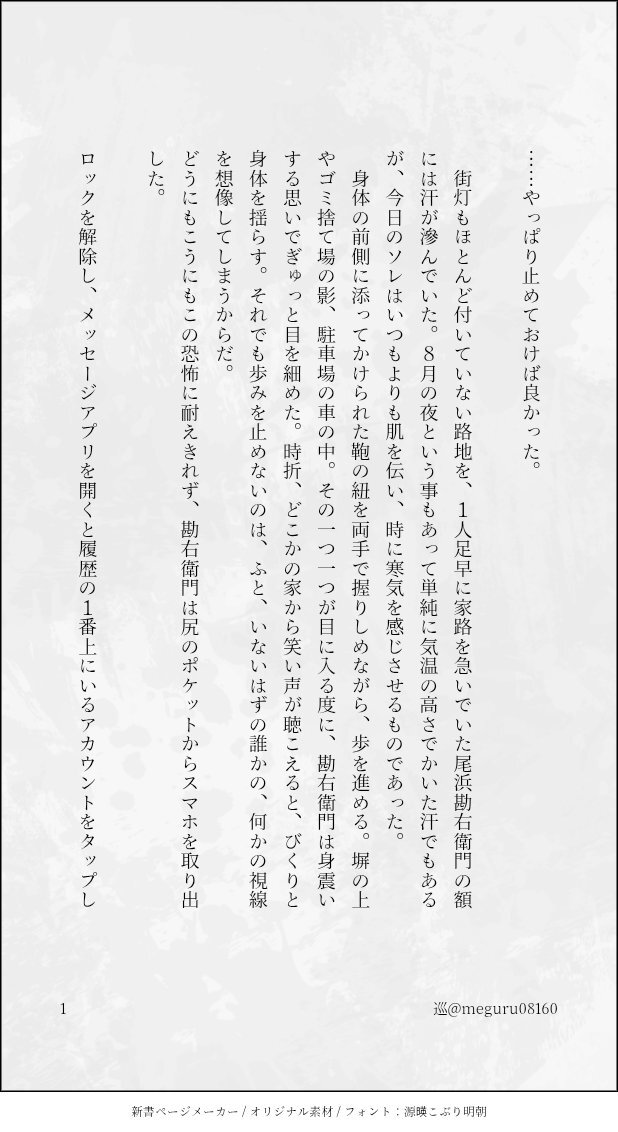 ……やっぱり止めておけば良かった。
　街灯もほとんど付いていない路地を、１人足早に家路を急いでいた尾浜勘右衛門の額
には汗が滲んでいた。８月の夜という事もあって単純に気温の高さでかいた汗でもある
が、今日のソレはいつもよりも肌を伝い、時に寒気を感じさせるものであった。
　身体の前側に添ってかけられた鞄の紐を両手で握りしめながら、歩を進める。塀の上
やゴミ捨て場の影、駐車場の車の中。その一つ一つが目に入る度に、勘右衛門は身震い
する思いでぎゅっと目を細めた。時折、どこかの家から笑い声が聴こえると、びくりと
身体を揺らす。それでも歩みを止めないのは、ふと、いないはずの誰かの、何かの視線
を想像してしまうからだ。
どうにもこうにもこの恐怖に耐えきれず、勘右衛門は尻のポケットからスマホを取り出
した。
ロックを解除し、メッセージアプリを開くと履歴の１番上にいるアカウントをタップし
1
巡@meguru08160
新書ページメーカー / オリジナル素材 / フォント：源暎こぶり明朝